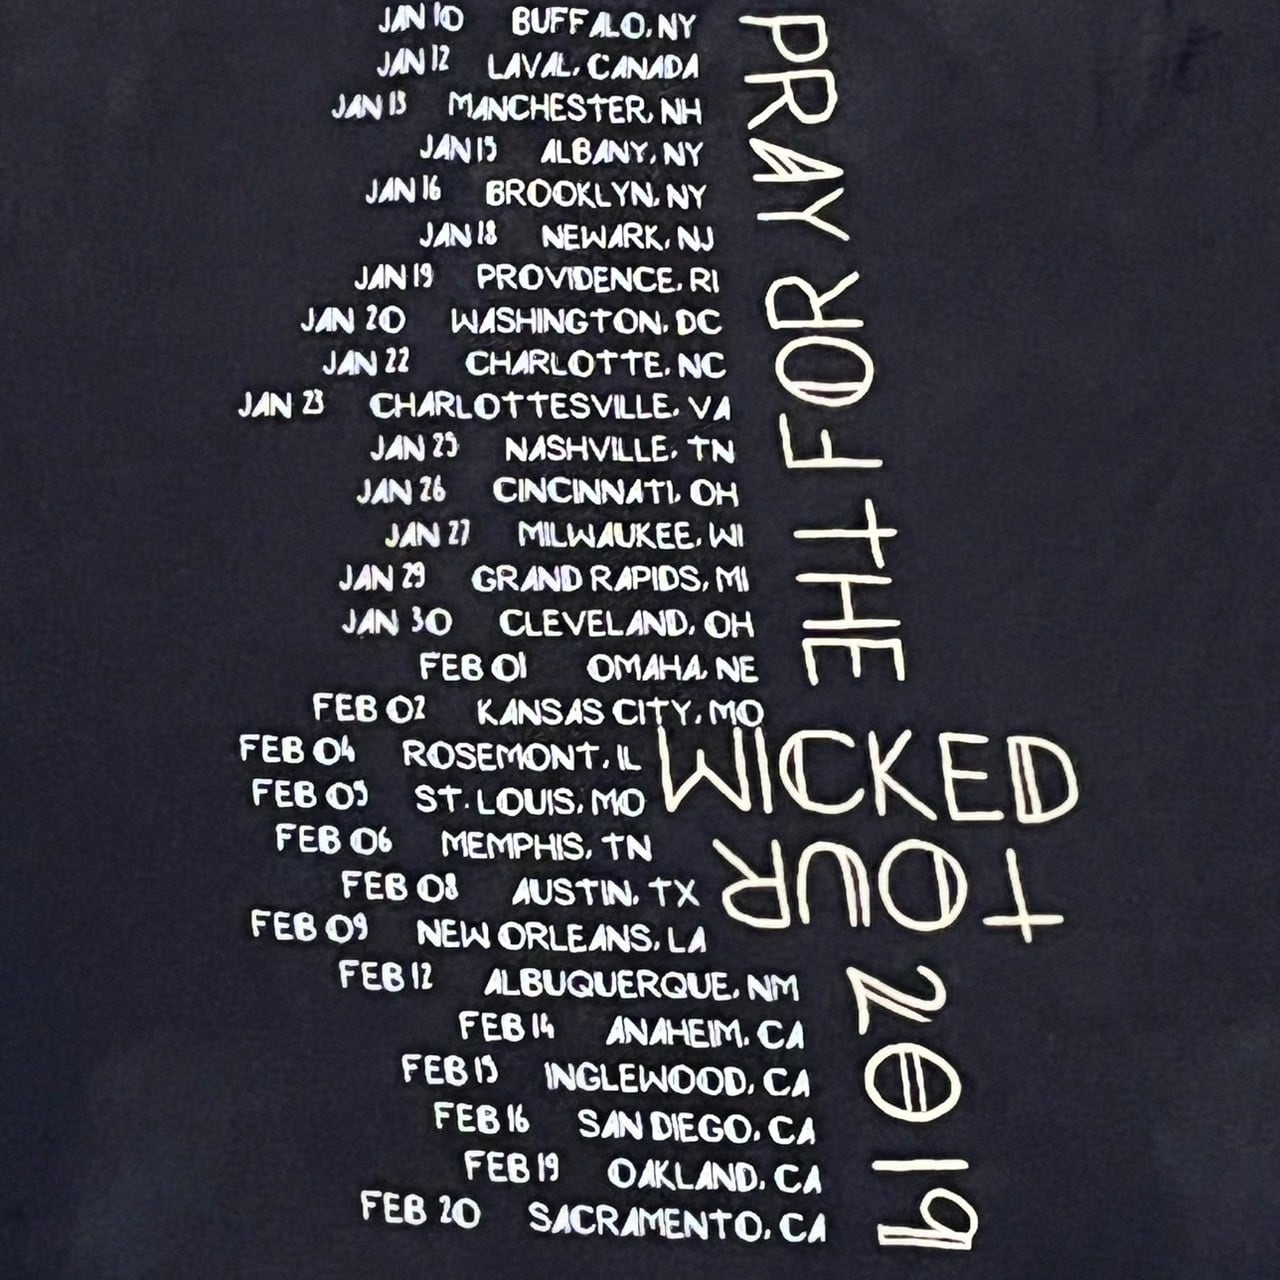 JAN 10 BUFFALO, NY
JAN 12 LAVAL, CANADA
JAN 13 MANCHESTER, NH
JAN 15 ALBANY, NY
JAN 16 BROOKLYN, NY
JAN 18 NEWARK, NJ
JAN 19 PROVIDENCE, RI
JAN 20 WASHINGTON, DC
JAN 22 CHARLOTTE, NC
JAN 23 CHARLOTTESVILLE, VA
JAN 25 NASHVILLE, TN
JAN 26 CINCINNATI, OH
JAN 27 MILWAUKEE, WI
JAN 29 GRAND RAPIDS, MI
JAN 30 CLEVELAND, OH
FEB 01 OMAHA, NE
FEB 02 KANSAS CITY, MO
FEB 04 ROSEMONT, IL
FEB 05 ST. LOUIS, MO
FEB 06 MEMPHIS, TN
FEB 08 AUSTIN, TX
FEB 09 NEW ORLEANS, LA
FEB 12 ALBUQUERQUE, NM
FEB 14 ANAHEIM, CA
FEB 15 INGLEWOOD, CA
FEB 16 SAN DIEGO, CA
FEB 19 OAKLAND, CA
FEB 20 SACRAMENTO, CA
PRAY FOR THE
WICKED
TOUR
2019